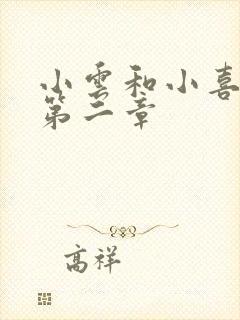 小雲和小喜
第二章
高祥